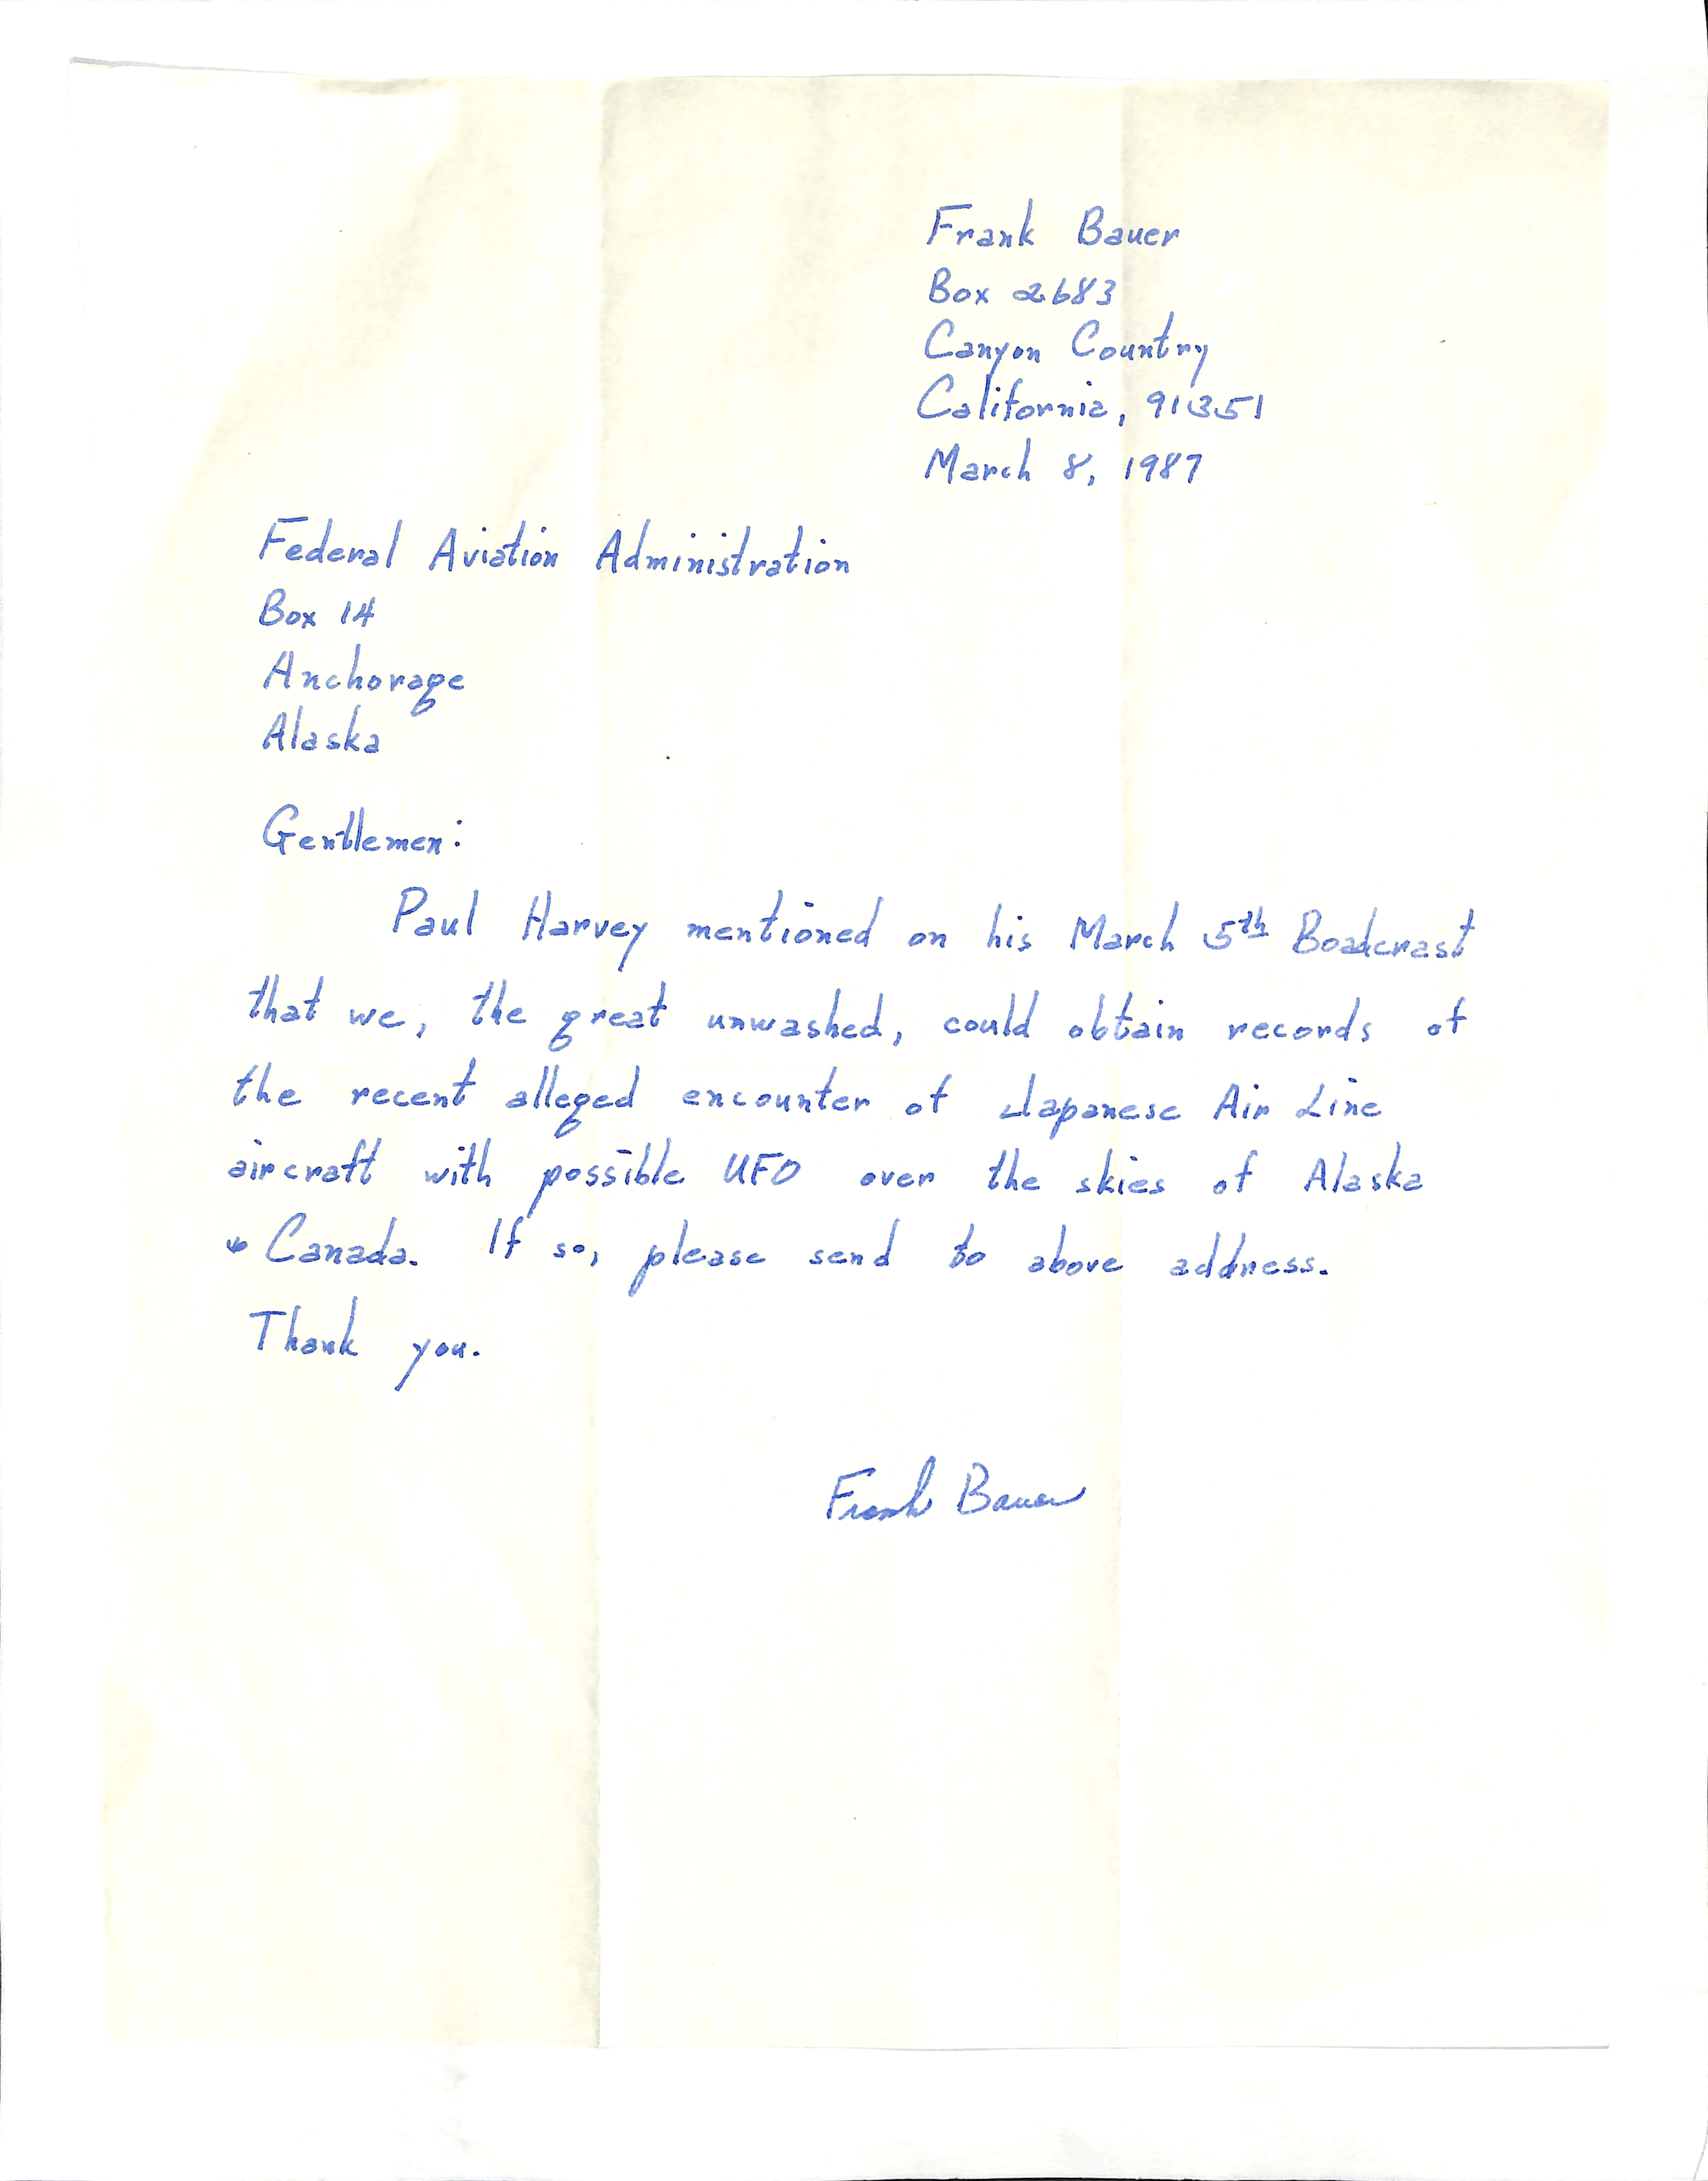 Frank Bauer
Box 2683
Canyon Country
California, 91351
March 8, 1987
Federal Aviation Administration
Box 14
Anchorage
Alaska
Gentlemen:
Paul Harvey mentioned on his March 5th Boadcrast
that we, the great unwashed, could obtain records of
the recent alleged encounter of Japanese Air Line
aircraft with possible UFO over the skies of Alaska
& Canada. If so, please send to above address.
Thank you.
Frank Bauer